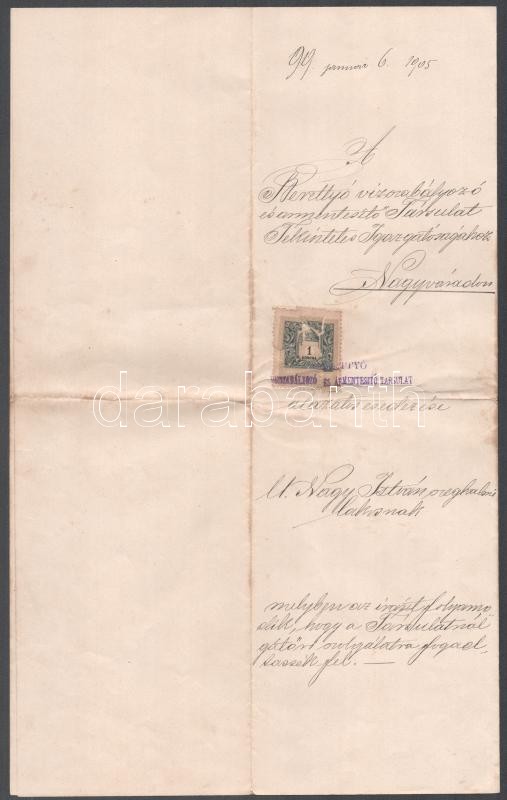 99. januári 6. 1905
A
Berettyó vizszabályozó
és armentesitő Társulat
Tekintetes Igazgatóságához
Nagyváradon
1
TTYÓ
ÉS ÁRMENTESITŐ TARSULAT
darabanth
alázatos esedezése
Nagy István szeghalmi
lakosnak
melyben az iránt folyamo
dik, hogy a Társulatnál
gátőri szolgálatra fogad
tassék fel. —